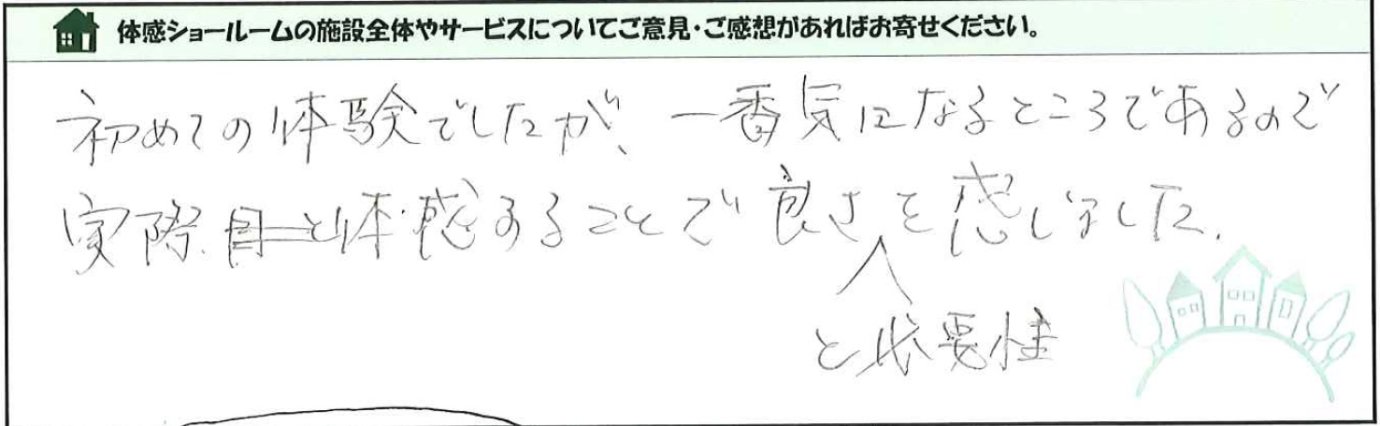 体感ショールームの施設全体やサービスについてご意見・ご感想があればお寄せください。
初めての体験でしたが、一番気になるところであるので
実際体感することで良さと必要性を感じました。